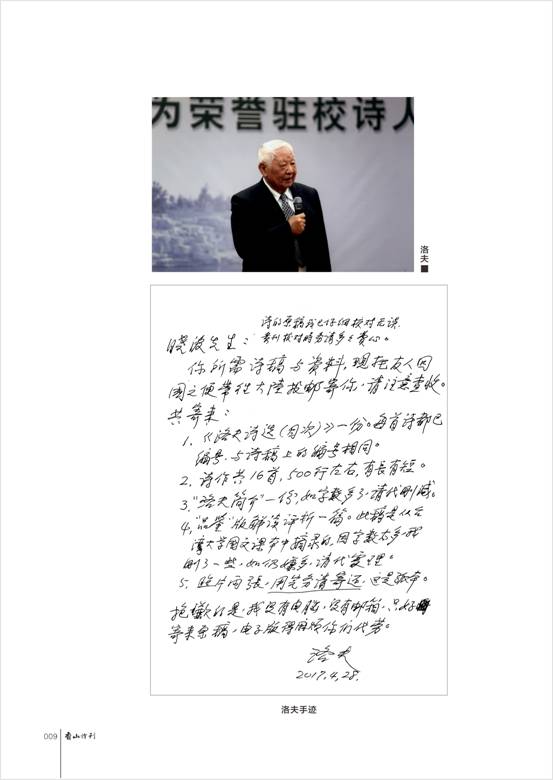 为荣誉驻校诗人
洛夫
诗的原稿我已仔细核对无误,
贵刊校对时务请多多费心。
晓波先生:
你所需诗稿与资料,现托友人回
国之便带往大陆投邮寄你,请注意查收。
共寄来:
1.《洛夫诗选(目次)》一份。每首诗都已
编号,与诗稿上的编号相同。
2. 诗作共16首,500行左右,有长有短。
3.“洛夫简介”一份,如字数多了,请代删减。
4.“品鉴”版解读评析一篇。此稿是从台
湾大学国文课本中摘录的,因字数太多,我
删了一些,如仍嫌多,请代处理。
5. 照片两张,用完务请寄还,这是孤本。
抱歉的是,我没有电脑,没有邮箱,只好
寄来原稿,电子版得麻烦你们代劳。
洛夫
2017.4.28.
洛夫手迹
009 香山诗刊